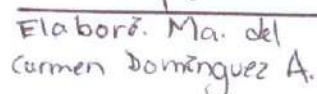 Elaboró. Ma. del
Carmen Domínguez A.